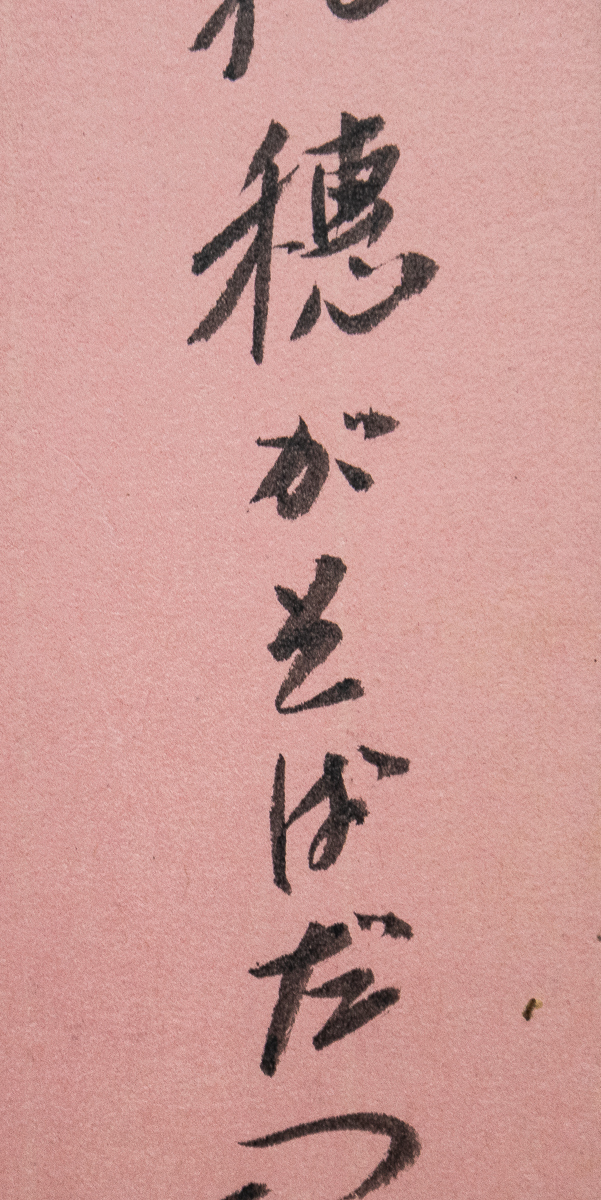 穂がそばだつ